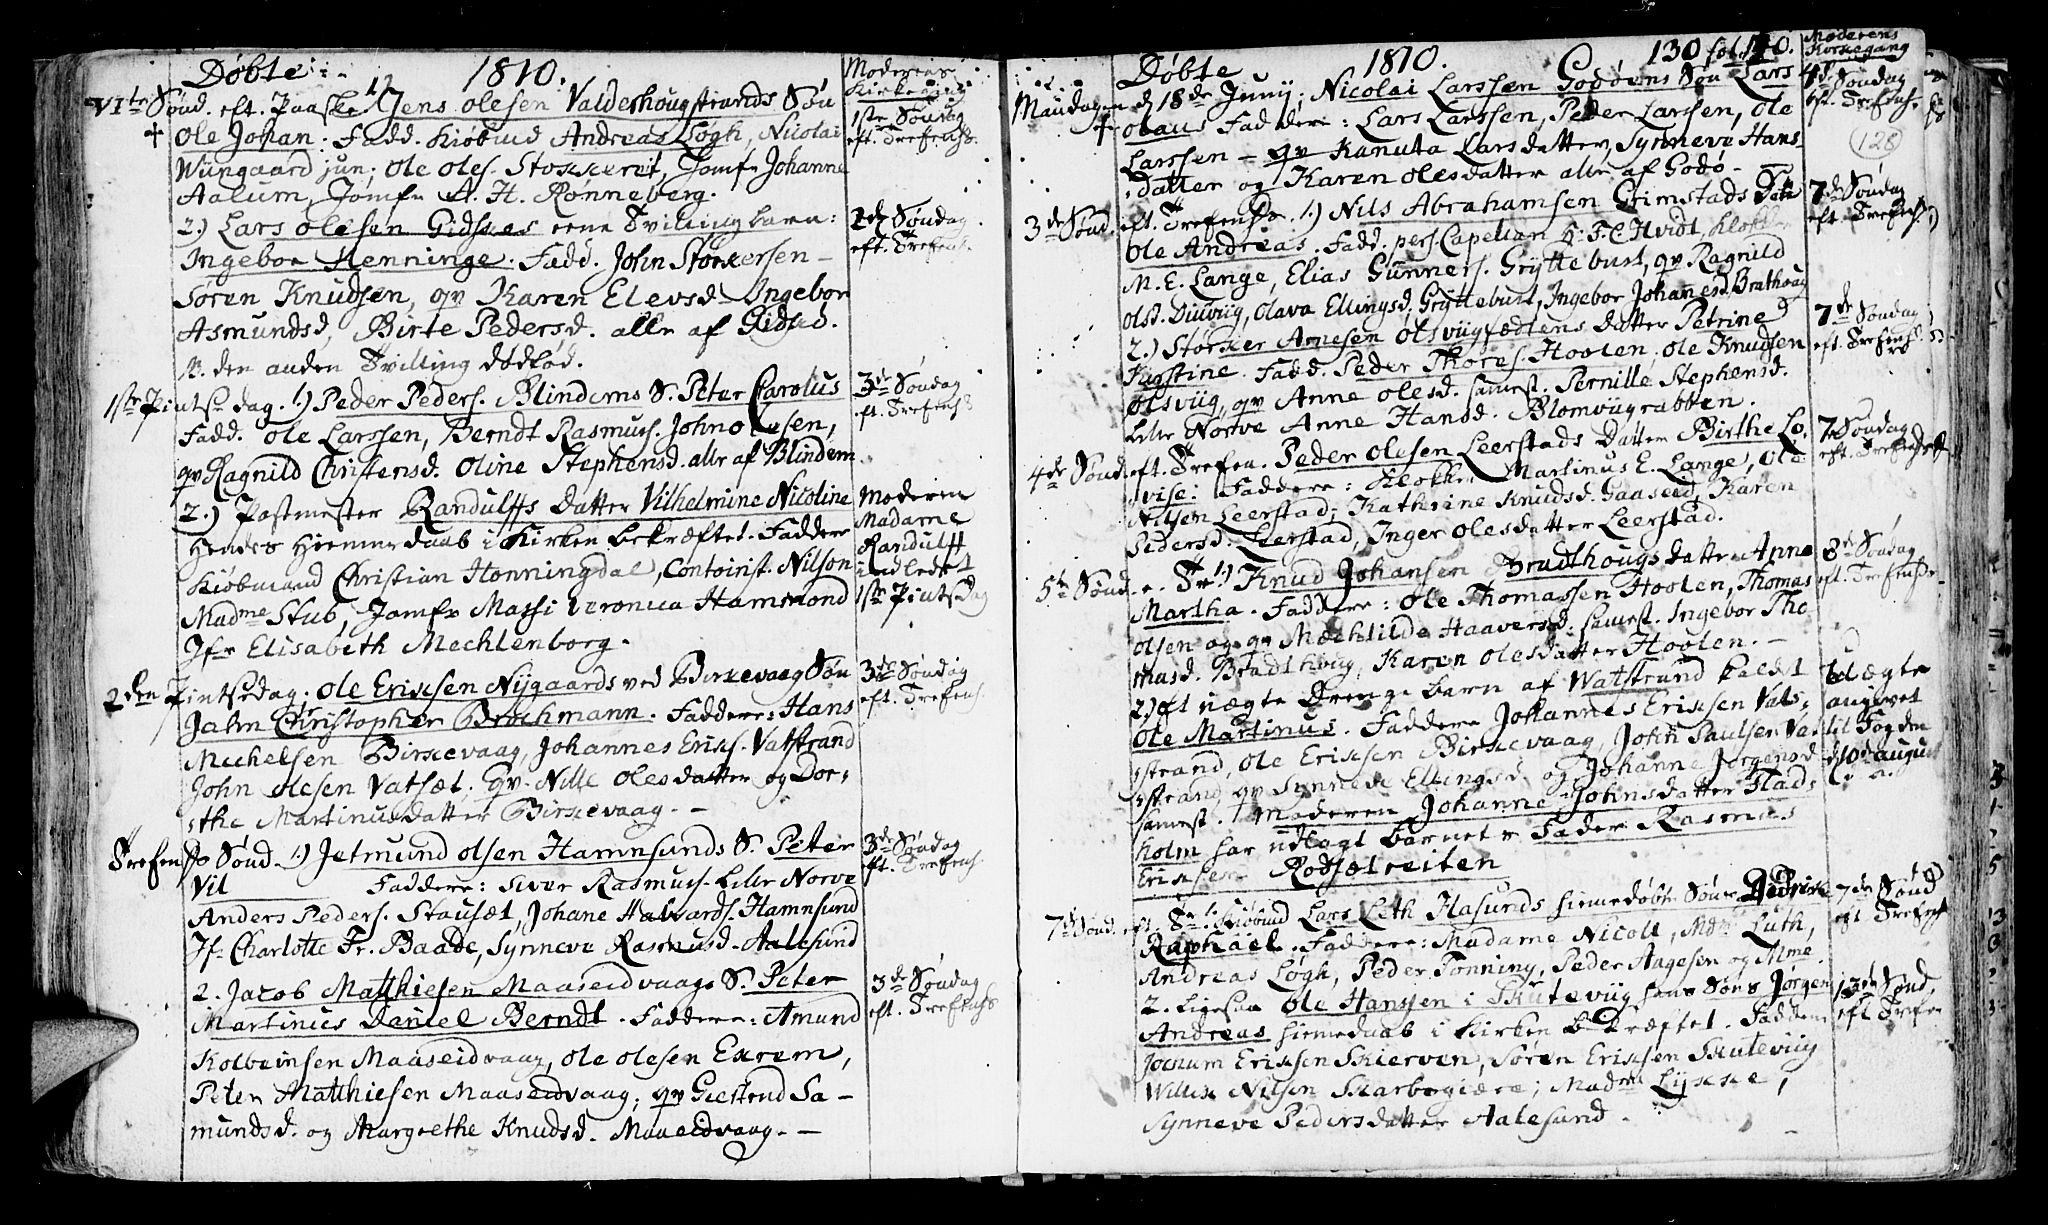 Døbte 1810. Moderens Kirkegang
VIte Sønd. eft. Paaske 1) Jens Olesen Valderhougstrands Søn
Ole Johan: Fadd. Kiøbmd Andreas Løgh, Nicolai
Wiingaard jun; Ole Oles. Stokkereit, Jomfr Johanne
Aalum, Jomfr A. H. Rønneberg.
1ste Søndag eft. Trefens.
2.) Lars Olesen Gidskes eene Tvillingbarn:
Ingebor Henninge. Fadd. John Storkersen -
Søren Knudsen, qv Karen Elevsd. Ingebor
Asmundsd, Birte Pedersd. alle af Gidskø.
N. den anden Tvilling dødfød.
2de Søndag eft. Trefens.
1ste Pintsedag. 1) Peder Peders. Blindems S. Peter Carolus
Fadd. Ole Larssen, Berndt Rasmus. John Olesen,
qv Ragnild Christensd. Oline Stephensd. alle af Blindem
3de Søndag eft. Trefens
2.) Postmester Randulffs Datter Vilhelmine Nicoline
hendes Hiemmedaab i Kirken bekræftet. Faddere
Kiøbmand Christian Honningdal, Contoirist. Nilson
Madme Stub, Jomfr Massi Veronica Hammond
Jfr Elisabeth Mechlenborg.
Moderen Madame Randulff indledet 1ste Pintsedag
2den Pintsedag. Ole Ericksen Nÿgaards ved Birkevaag Søn
Jahn Christopher Brochmann. Faddere: Hans
Michelsen Birkevaag, Johannes Eriks. Vatstrand
John Olesen Vatsæt; Qv. Nille Olesdatter og Dor-
the Martinusdatter Birkevaag. -
3de Søndag eft. Trefens.
Trefens Sønd. 1.) Jetmund Olsen Hamnsunds S. Peter
Vil Faddere: Siver Rasmuss. Lille Norve
Anders Peders. Stausæt, Johane Halvards. Hamnsund
Jfr Charlotte Fr. Baade, Synneve Rasmusd. Aalesund
3de Søndag eft. Trefens.
2. Jacob Matthiesen Maaseidvaags S. Peter
Martinus Daniel Berndt. Faddere: Amund
Kolbeinsen Maaseidvaag, Ole Olesen Exrem,
Peter Matthiesen Maaseidvaag; qv Giertrud Sa-
mundsd. og Margrethe Knudsd. Maaseidvaag. -
3de Søndag eft. Trefens
Døbte 1810. 130 fol. 140. Moderens Kirkegang
128
Mandagen d 18de Junij: Nicolai Larssen Godøens Søn Lars
Olaus Faddere: Lars Larssen, Peder Larssen, Ole
Larssen - qv Kanuta Larsdatter, Synneve Hans
datter og Karen Olesdatter alle af Godø -
4de Søndag eft. Trefens.
3de Sønd. eft. Trefens. 1.) Nils Abrahamsen Grimstads
Ole Andreas. Fadd. pers. Capellan H. F. C. Hvidt,
M. E. Lange, Elias Gunners. Gryttebust, qv Ragnild
Olsd. Olava Ellingsd. Gryttebust, Ingebor Johannesd. Brathoug
7de Søndag eft. Trefens.
2.) Storker Arnesen Olsviig fædlens Datter Petrine
Kirstine. Fadd. Peder Thores. Hoolen, Ole Knudsen
Olsviig, qv Anne Olesd. samest. Pernille Stephensd.
Lille Norve Anne Hansd. Blomviigrabben.
7de Søndag eft. Trefens.
4de Sønd. eft. Trefen. Peder Olesen Leerstads Datter Birthe Lo-
vise: Faddere: Klokker Martinus E. Lange, Ole
Nilsen Leerstad; Kathrine Knudsd. Gaaseid, Karen
Pedersd. Leerstad, Inger Olesdatter Leerstad.
7de Søndag eft. Trefens
5te Sønd. e. Tr. 1.) Knud Johansen Bradthougs Datter Anne
Martha. Faddere: Ole Thomassen Hoolen, Thomas
Olsen og qv Mechtilde Haaversd. samest. Ingebor Tho-
masd. Bradthoug, Karen Olesdatter Hoolen. -
8de Søndag eft. Trefens.
2.) et uægte Drengebarn af Watstrand kaldt
Ole Martinus. Faddere Johannes Eriksen Vats-
strand, Ole Eriksen Birkevaag, John Paulsen Vat-
strand, qv Synneve Ellingsd. og Johanne Jørgensd.
samest. Moderen Johanne Johnsdatter Flads-
holm har udlagt Barnets Fader Rasmus
Eriksen Rødsætreiten
Uægte angivet til Fogden d 10de August
7de Sønd. eft. Tr. 1. Kiøbmd Lars Leth Hasunds hiemedøbte Søn Didrik
Raphael. Faddere: Madame Nicoll, Mdm Luth,
Andreas Løgh, Peder Tonning, Peder Aagesen og Alme
7de Sønd eft Trefens
2. Ligesaa Ole Hanssen i Skuteviig hans Søns Jørgen
Andreas hiemedaab i Kirken bekræftet. Faddere
Jochum Eriksen Skierven, Søren Eriksen Skuteviig
Willix Nilsen Skarbøgiære; Madme Lÿkke,
Synneve Pedersdatter Aalesund.
13de Sønd. eft Trefen